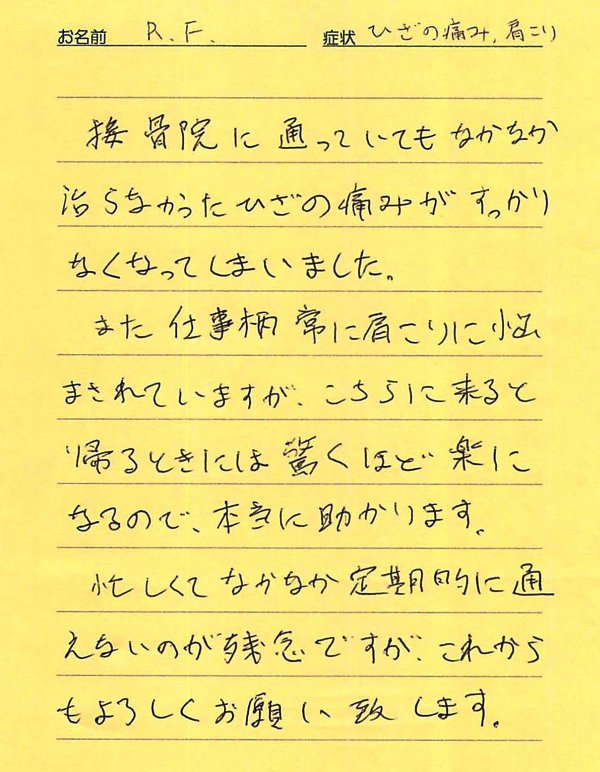 お名前 R.F. 症状 ひざの痛み、肩こり
接骨院に通っていてもなかなか
治らなかったひざの痛みがすっかり
なくなってしまいました。
また仕事柄常に肩こりに悩
まされていますが、こちらに来ると
帰るときには驚くほど楽に
なるので、本当に助かります。
忙しくてなかなか定期的に通
えないのが残念ですが、これから
もよろしくお願い致します。